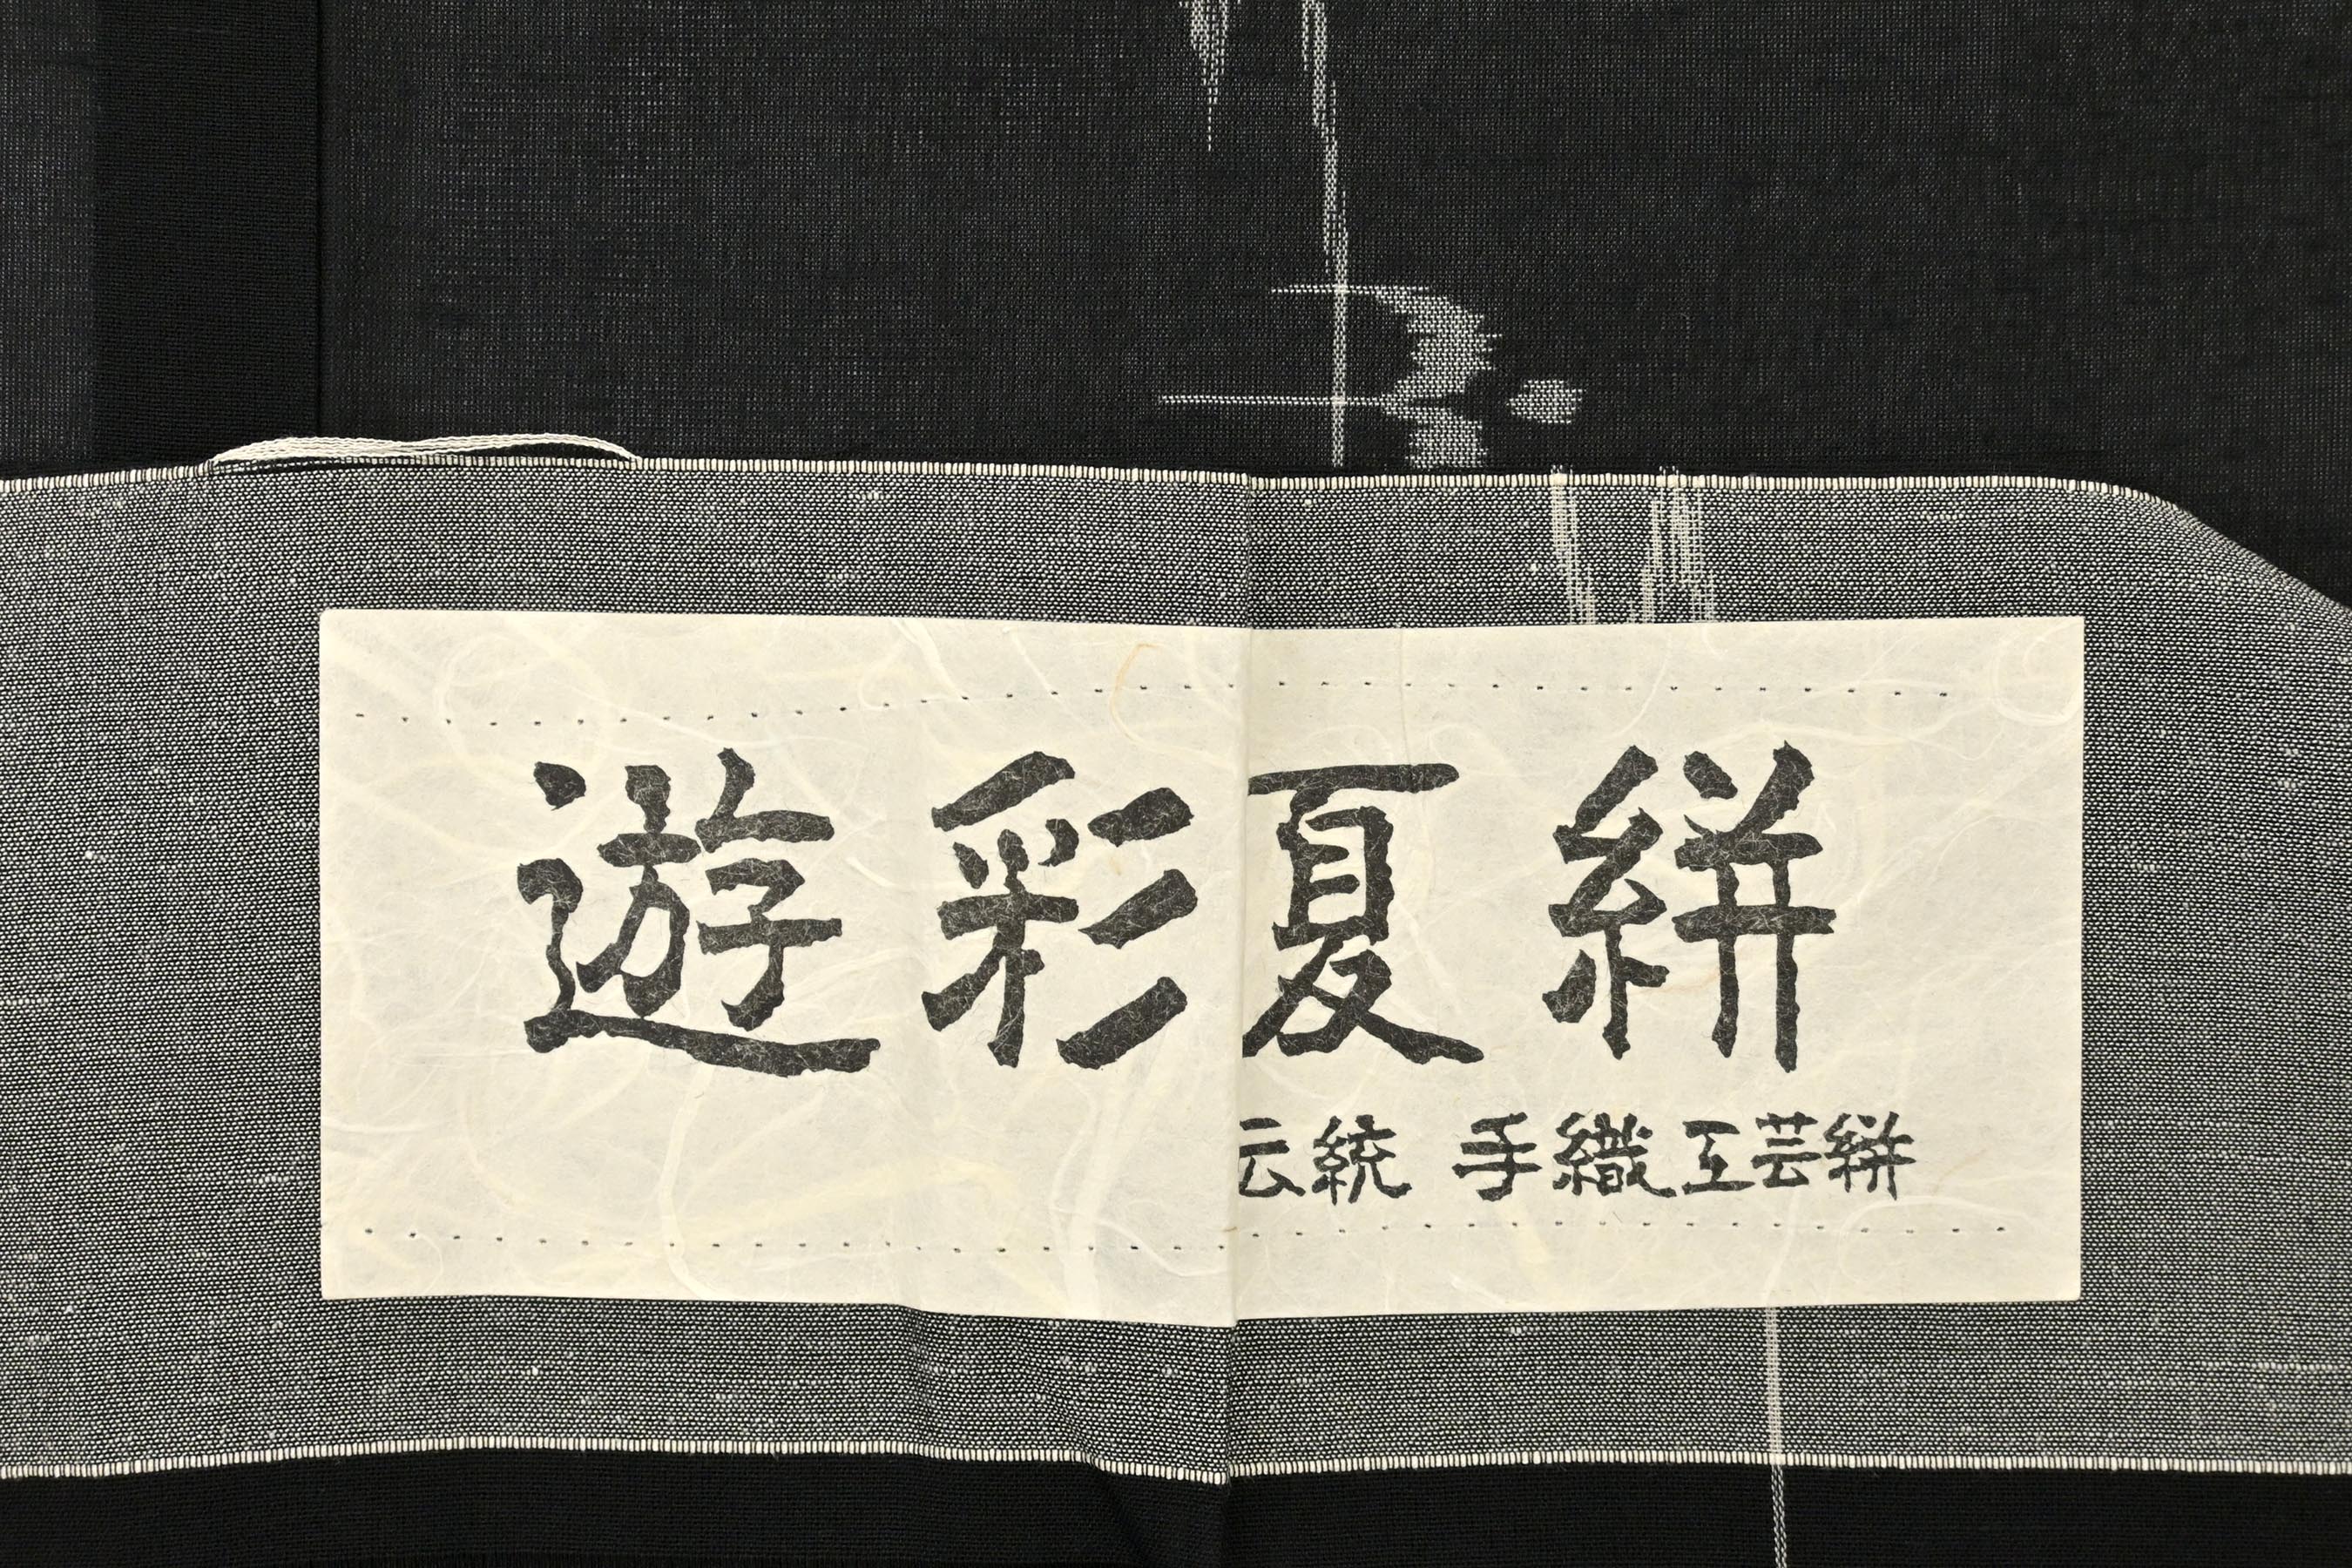 遊彩夏絣
伝統 手織工芸絣